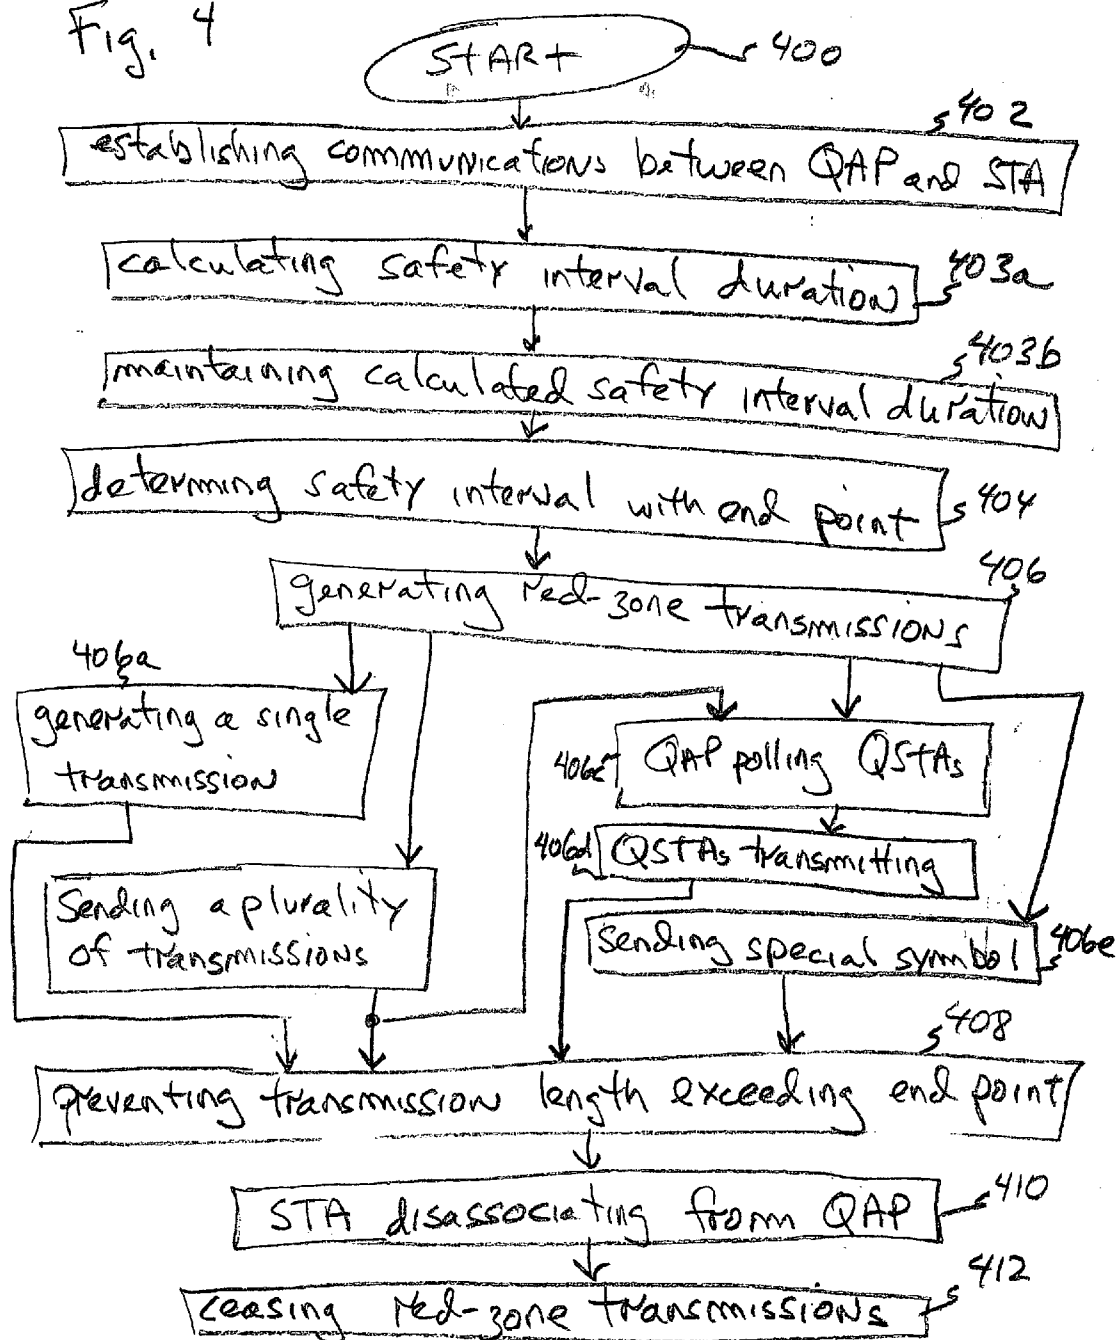 Fig. 4
START
400
402
establishing communications between QAP and STA
calculating safety interval duration
403a
403b
maintaining calculated safety interval duration
determing safety interval with end point
404
406
generating red-zone transmissions
406a
generating a single
transmission
406c
QAP polling QSTAs
406d
QSTAs transmitting
Sending a plurality
of transmissions
sending special symbol
406e
408
preventing transmission length exceeding end point
410
STA disassociating from QAP
412
ceasing red-zone transmissions